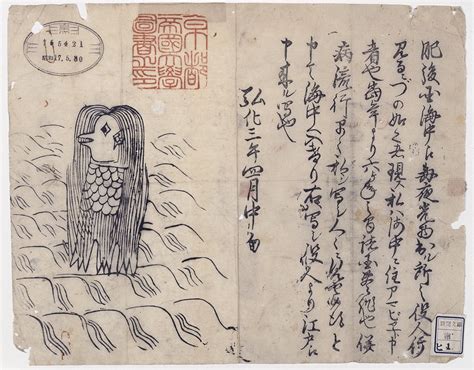 肥後国海中え毎夜光物出ル所之役人行
見るニづの如く者現ス私ハ海中ニ住アマビヱト申
者也当年より六ケ年之間諸国豊作也併
病流行早々私ヲ写シ人々ニ見セ候得と
申て海中へ入けり右写シ役人より江戸え
申来ル写也
弘化三年四月中旬
京都
帝國大學
圖書之印